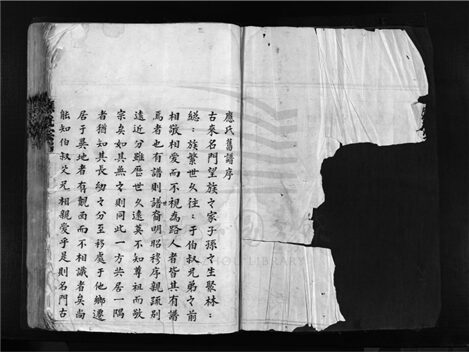 應氏舊譜序
古來名門望族之家子孫之生聚林:
總:族繁世久往:于伯叔兄弟之前
相敬相愛而不視為路人者皆其有譜
焉者也有譜則譜裔明昭穆序親疏別
遠近分雖歷世久遠莫不知尊祖而敬
宗矣如其無之則同此一方共居一隅
者猶知其長幼之分至移處于他鄉遷
居于異地者有覿面而不相識者矣尚
能知伯叔父兄相親愛乎是則名門古
LIBRARY